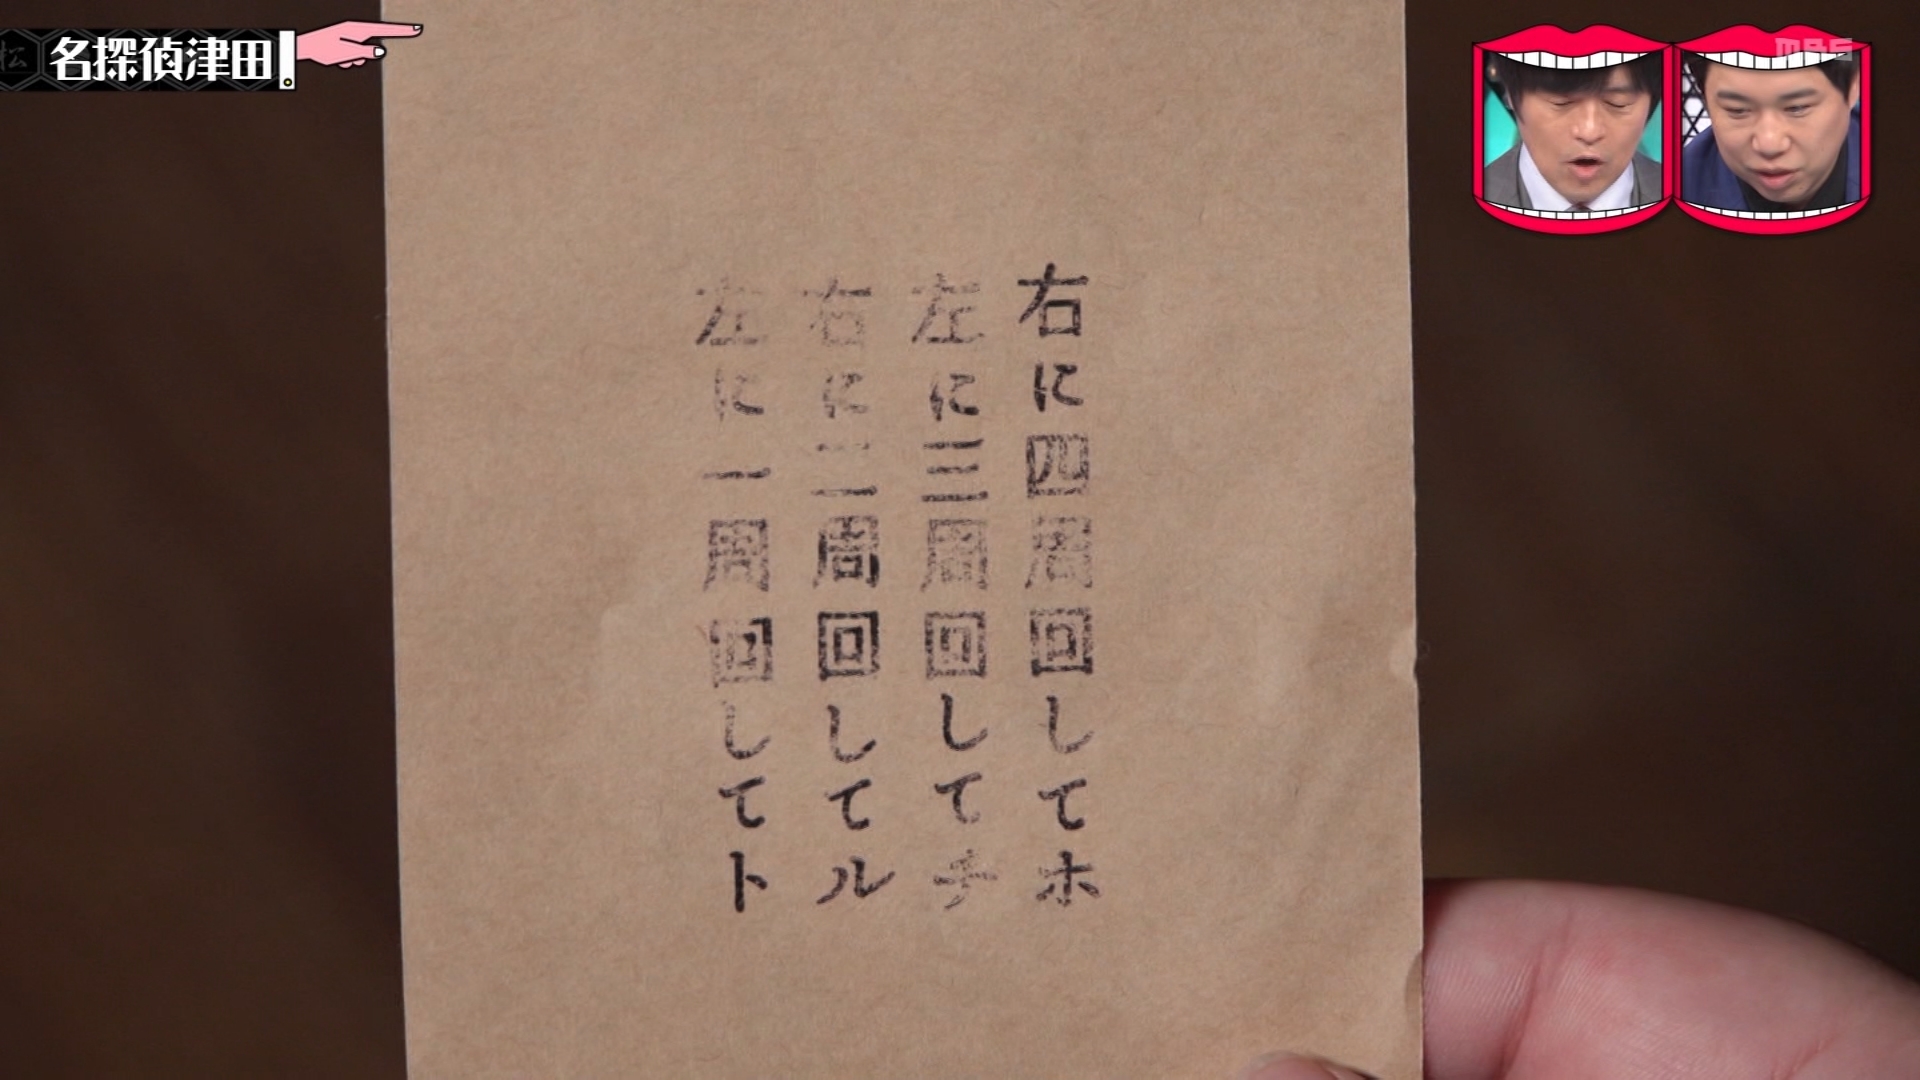 名探偵津田
MBS
右に四周回してホ
左に三周回してチ
右に二周回してル
左に一周回してト